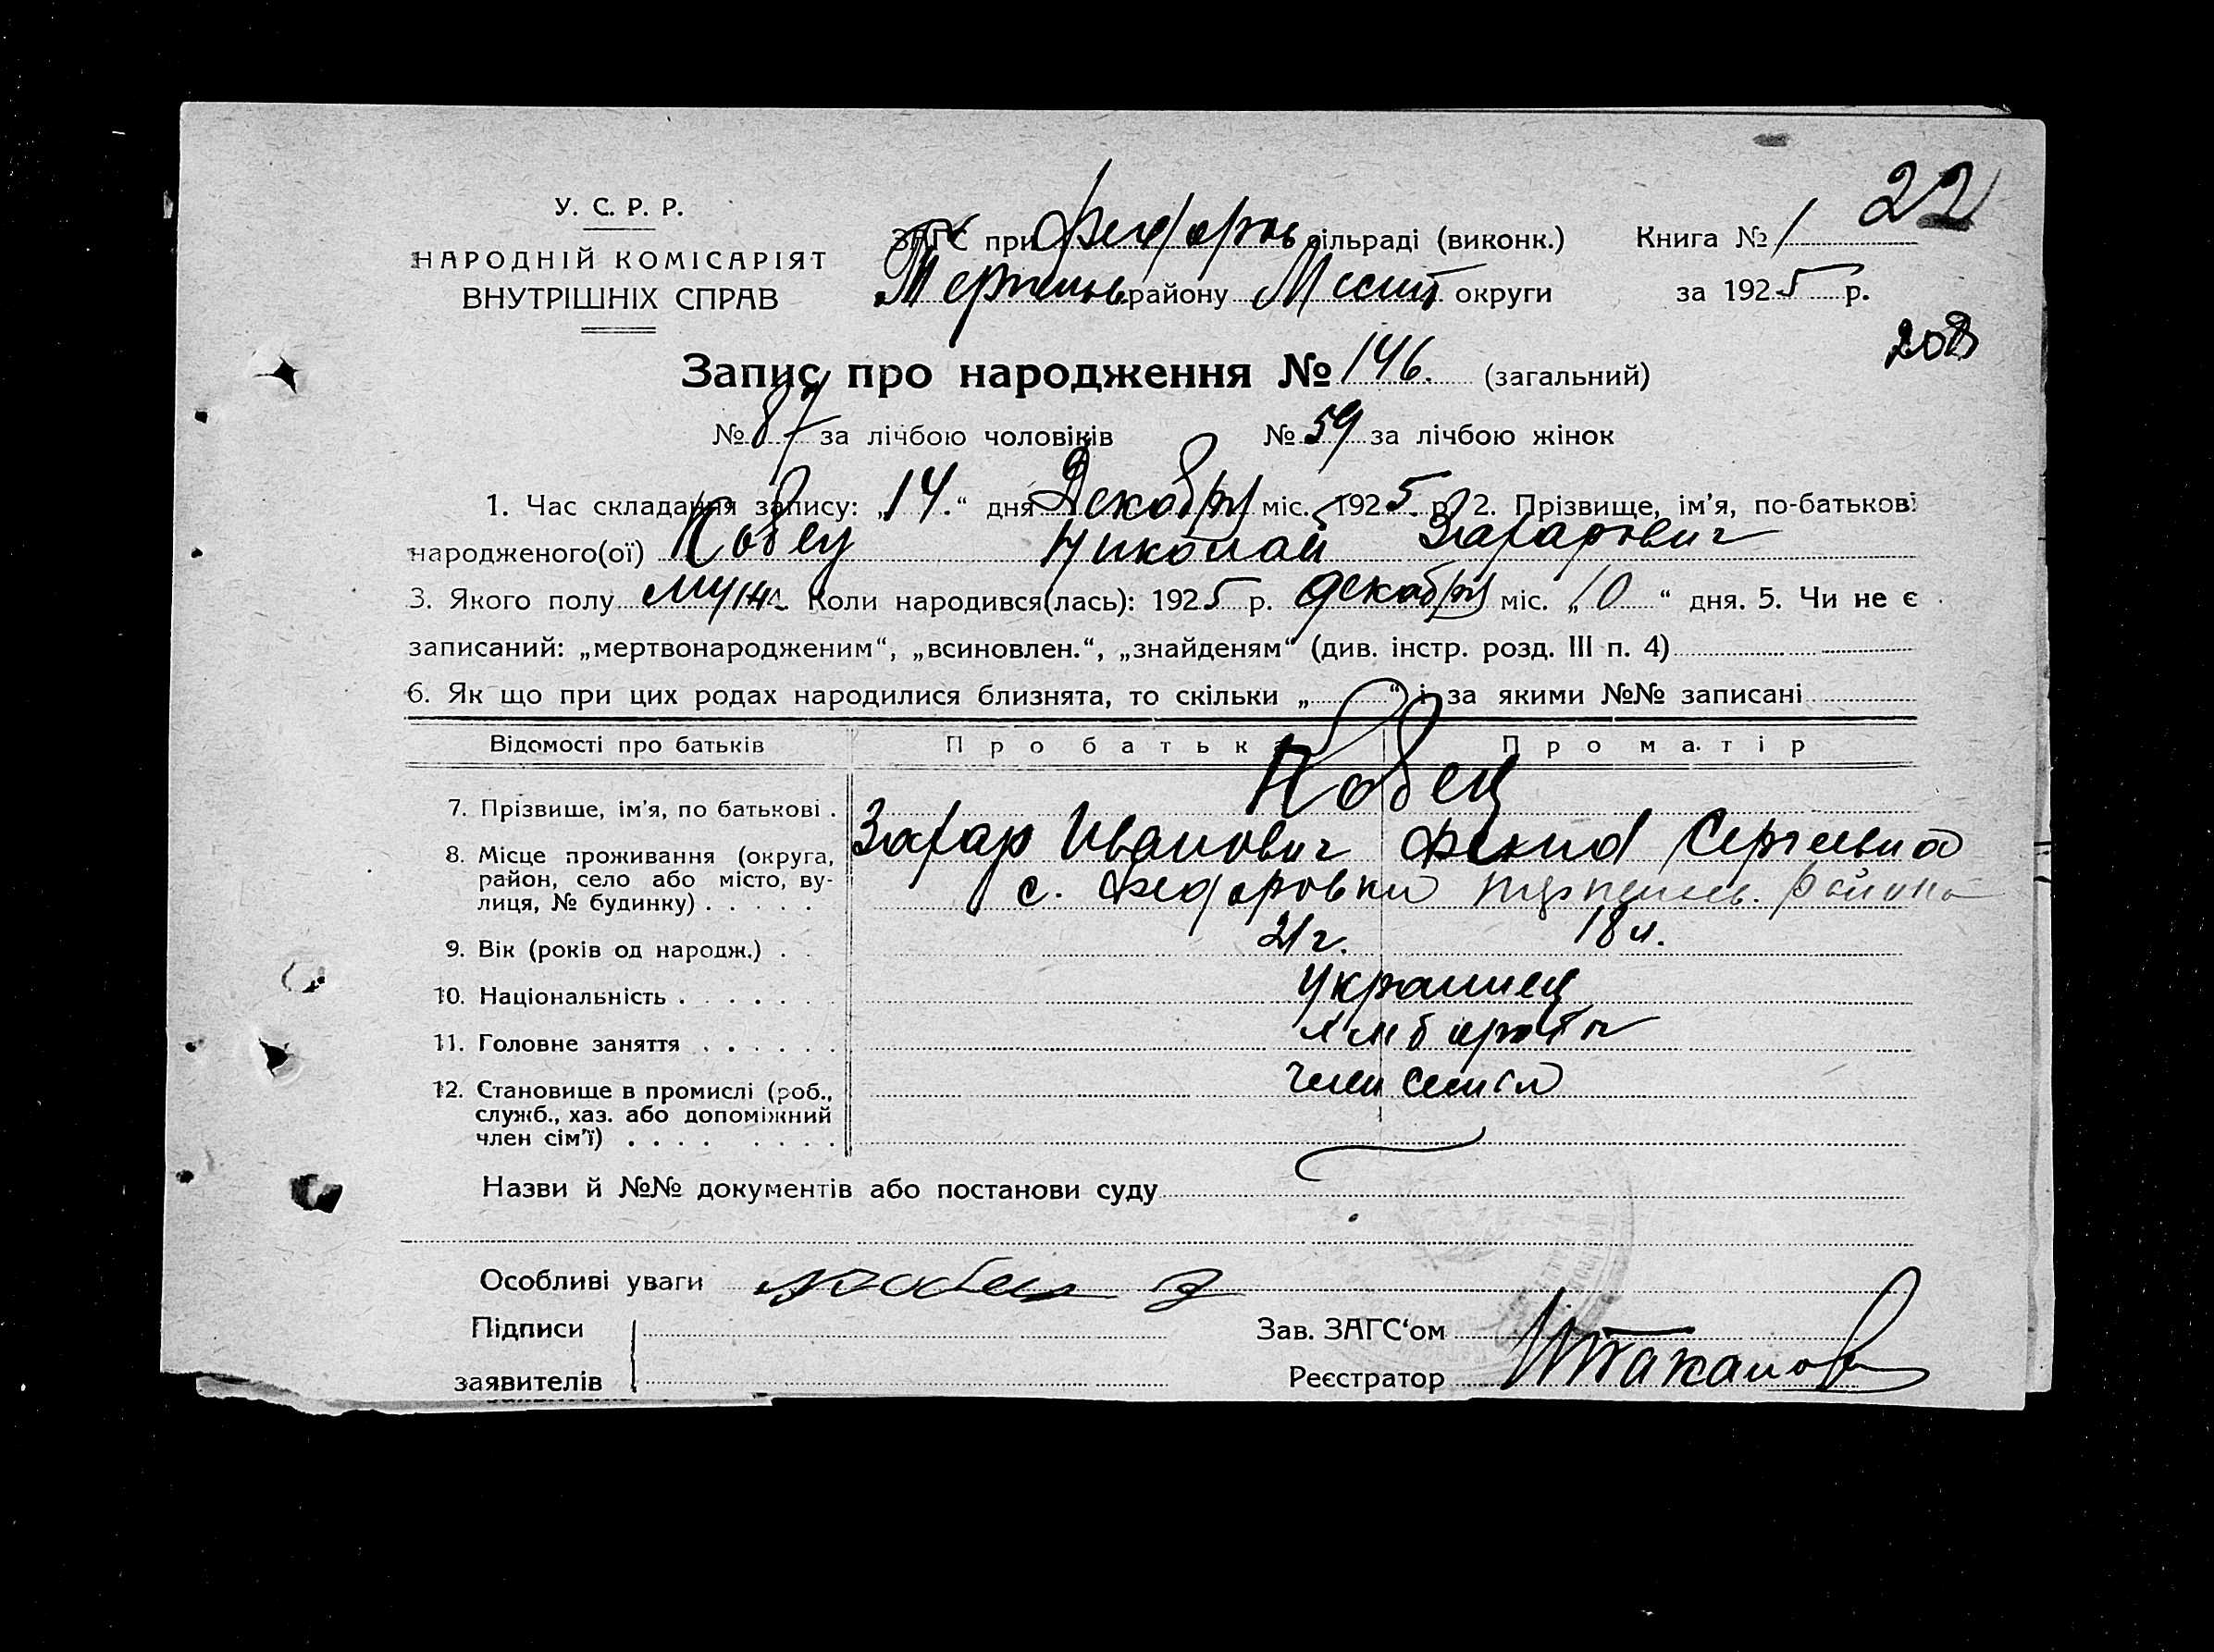 22
У. С. Р. Р.
НАРОДНІЙ КОМІСАРІЯТ
ВНУТРІШНІХ СПРАВ
ЗАГС при Федоров сільраді (виконк.) Книга № 1
району округи за 1925 р.
Запис про народження № 146. (загальний)
№ 87 за лічбою чоловіків № 59 за лічбою жінок
1. Час складання запису: „14.“ дня Декабря міс. 1925 р. 2. Прізвище, ім'я, по-батькові
народженого(ої) Николай Захарович
3. Якого полу муж. Коли народився(лась): 1925 р. декабря міс. „10“ дня. 5. Чи не є
записаний: „мертвонародженим“, „всиновлен.“, „знайденям“ (див. інстр. розд. III п. 4)
6. Як що при цих родах народилися близнята, то скільки „ “ і за якими №№ записані
Відомості про батьків Про батька Про матір
7. Прізвище, ім'я, по батькові . Захар Иванович Сергеевна
8. Місце проживання (округа, район, село або місто, вулиця, № будинку) . . . . . с. Федоровка района
9. Вік (років од народж.) . . 21 г. 18 л.
10. Національність . . . . . . . Украинец
11. Головне заняття . . . . . . хлебороб
12. Становище в промислі (роб., служб., хаз. або допоміжний член сім'ї) . . . . . . . . член семьи
Назви й №№ документів або постанови суду
Особливі уваги
Підписи
заявителів
Зав. ЗАГС‘ом
Реєстратор